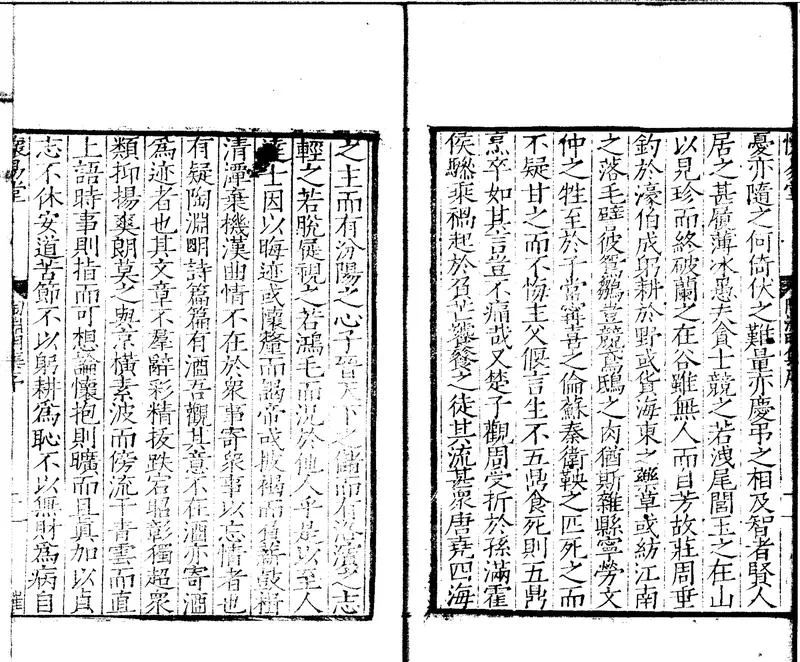 憂亦隨之何倚伏之難量亦慶弔之相及智者賢人
居之甚履薄冰愚夫貪士競之若洩尾閭玉之在山
以見珍而終破蘭之在谷雖無人而自芳故莊周垂
釣於濠伯成躬耕於野或貨海東之藥草或紡江南
之落毛譬彼鴛鶵豈競鳶鴟之肉猶斯雜縣寧勞文
仲之牲至於子常寗喜之倫蘇秦衛鞅之匹死之而
不疑甘之而不悔主父偃言生不五鼎食死則五鼎
烹卒如其言豈不痛哉又楚子觀周受折於孫滿霍
侯驂乘禍起於負芒饕餮之徒其流甚衆唐堯四海
之主而有汾陽之心子晉天下之儲而有洛濱之志
輕之若脫屣視之若鴻毛而況於他人乎是以至人
達士因以晦迹或懷釐而謁帝或披褐而負薪鼓楫
清潭棄機漢曲情不在於衆事寄衆事以忘情者也
有疑陶淵明詩篇篇有酒吾觀其意不在酒亦寄酒
爲迹者也其文章不羣辭彩精拔跌宕昭彰獨超衆
類抑揚爽朗莫之與京橫素波而傍流干青雲而直
上語時事則指而可想論懷抱則曠而且真加以貞
志不休安道苦節不以躬耕爲恥不以無財爲病自